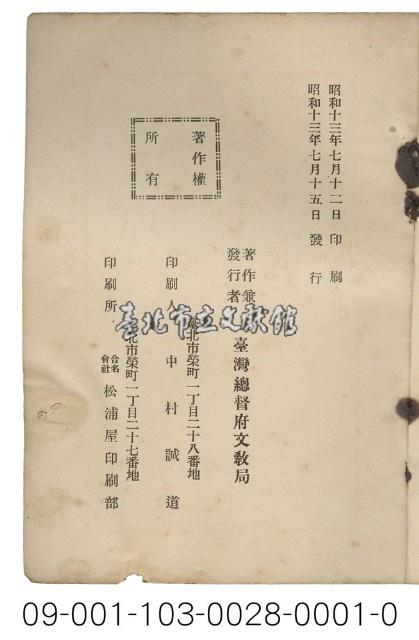 昭和十三年七月十二日 印刷
昭和十三年七月十五日 發行
著作權
所有
著作兼
發行者 臺灣總督府文教局
北市榮町一丁目二十八番地
印刷人 中村誠道
北市榮町一丁目二十七番地
印刷所 合名會社 松浦屋印刷部
臺北市立文獻館
09-001-103-0028-0001-0